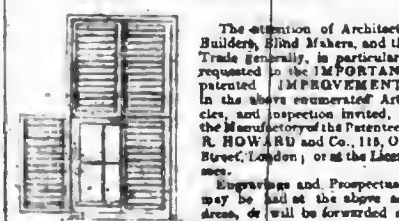 The attention of Architect
Builders, Blind Makers, and th
Trade generally, is particular
requested to the IMPORTAN
patented IMPROVEMENT
in the above enumerated Art
cles, and inspection invited,
the Manufactory of the Patentee
R. HOWARD and Co., 116, O
Street, London; or at the Lice
sees.
Engravings and Prospectus
may be had at the above ad
dress, or will be forwarded